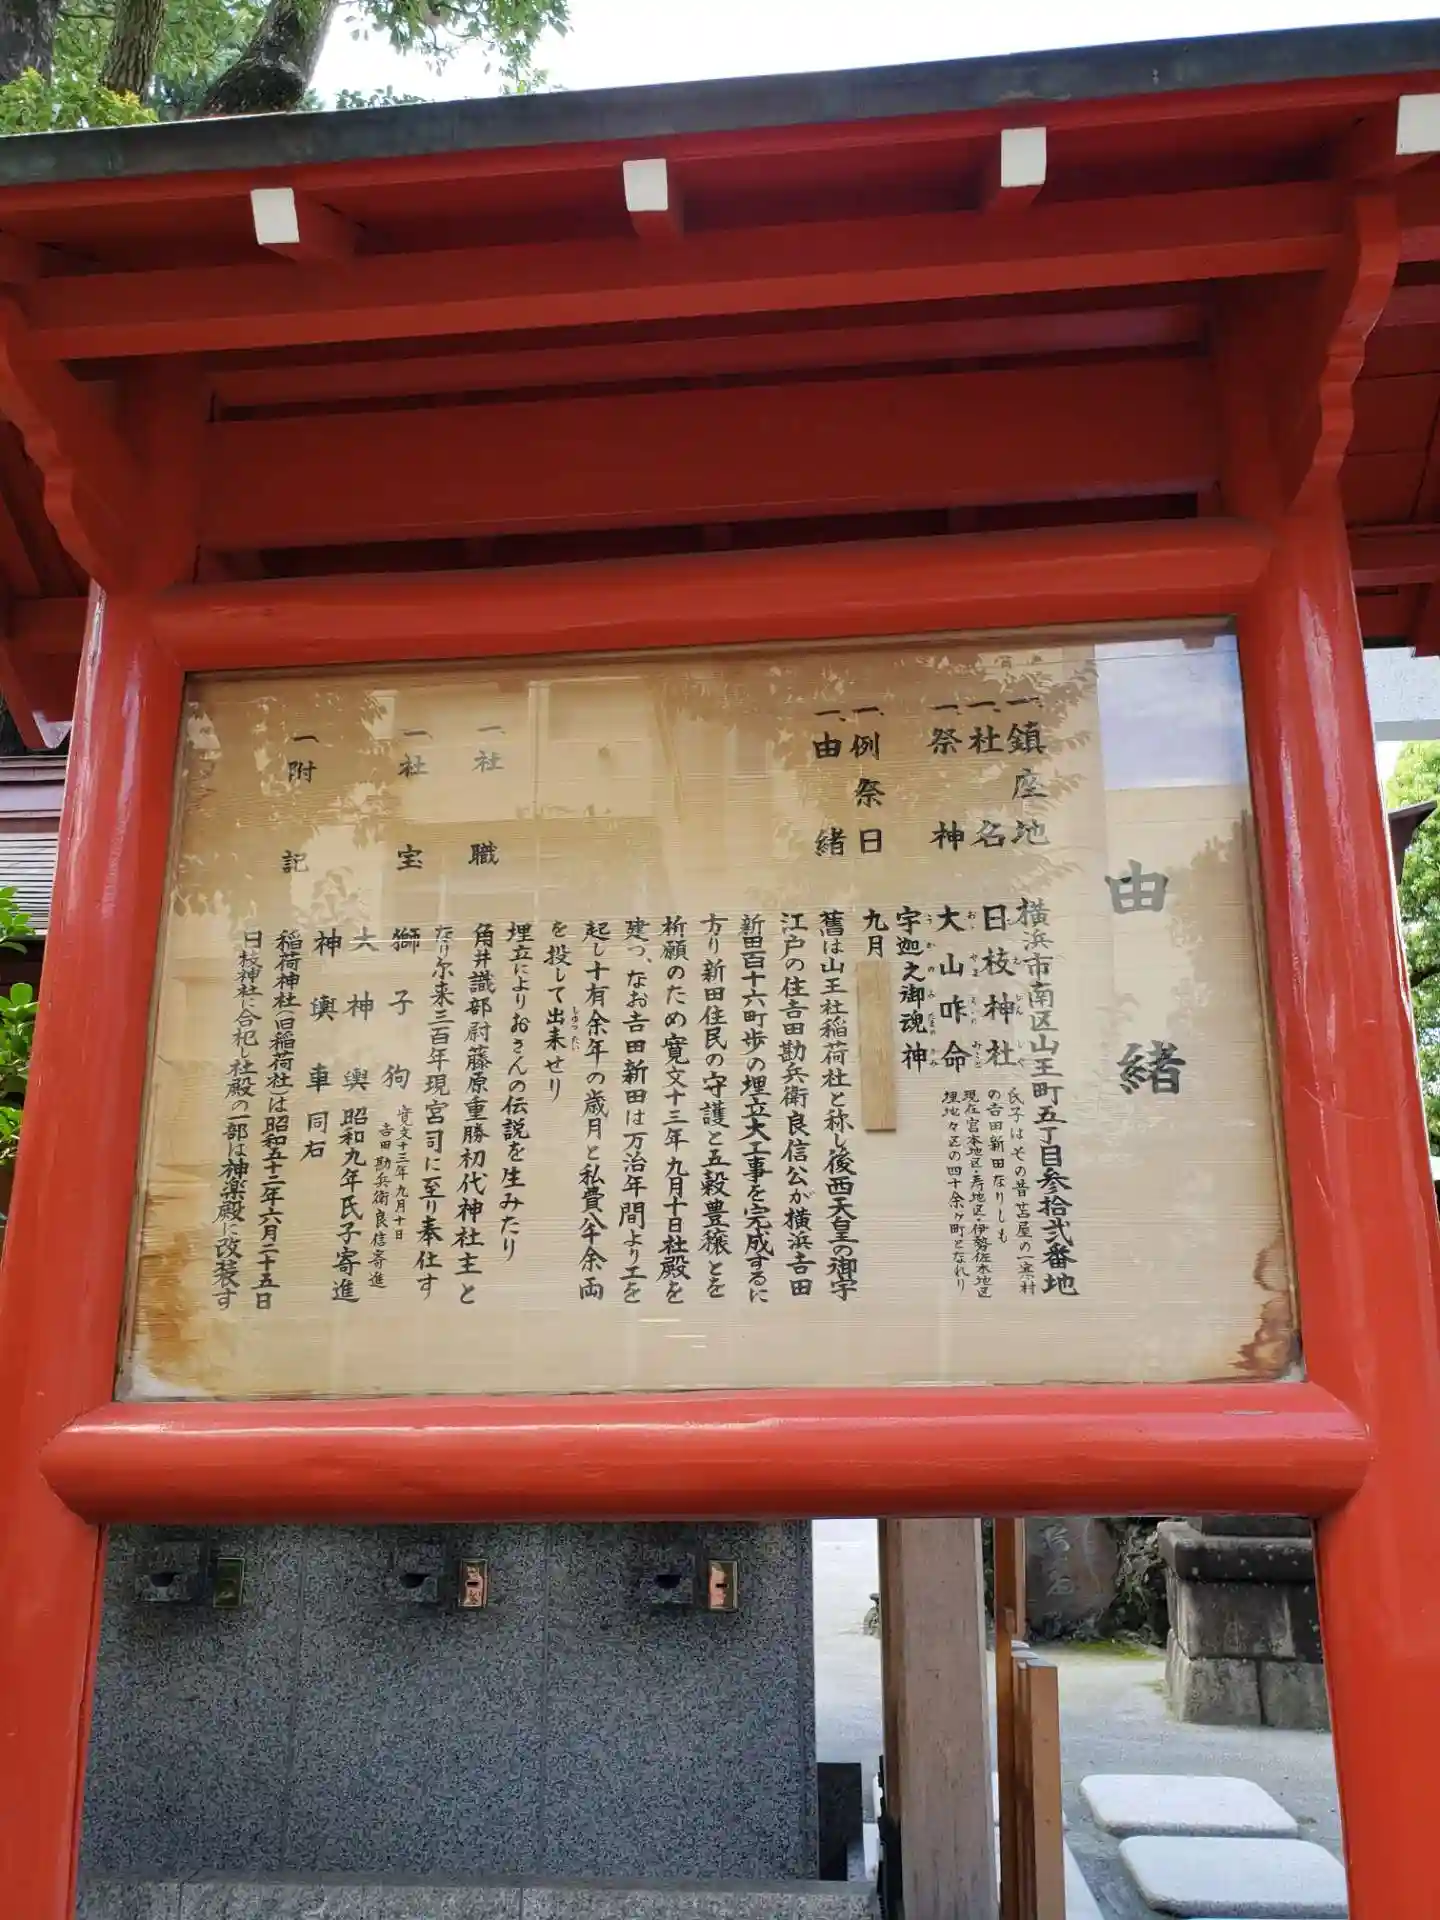 由緒
一、鎮座地 横浜市南区山王町五丁目参拾弐番地
一、社名 日枝神社
ひえじんしゃ
氏子はその昔苫屋の一寒村
の吉田新田なりしも
現在宮本地区・寿地区・伊勢佐木地区
埋地々区の四十余ヶ町となれり
一、祭神 大山咋命
おおやまくいのみこと
宇迦之御魂神
うかのみたまのかみ
一、例祭日 九月
一、由緒 舊は山王社稲荷社と称し後西天皇の御宇
江戸の住吉田勘兵衛良信公が横浜吉田
新田百十六町歩の埋立大工事を完成するに
方り新田住民の守護と五穀豊穣とを
祈願のため寛文十三年九月十日社殿を
建つ、なお吉田新田は万治年間より工を
起し十有余年の歳月と私費八千余両
を投して出来せり
しゅったい
埋立によりおさんの伝説を生みたり
一、社職 角井識部尉藤原重勝初代神社主と
なり尓来三百年現宮司に至り奉仕す
一、社宝 獅子狗 寛文十三年九月十日
吉田勘兵衛良信寄進
大神輿 昭和九年氏子寄進
神輿車 同右
一、附記 稲荷神社(旧稲荷社)は昭和五十二年六月二十五日
日枝神社に合祀し社殿の一部は神楽殿に改装す